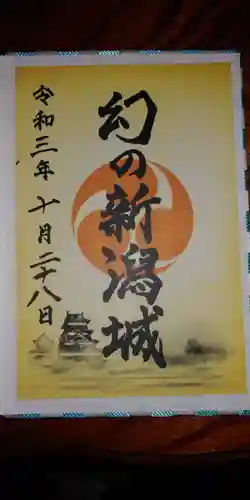 幻の新潟城
令和三年 十月二十八日